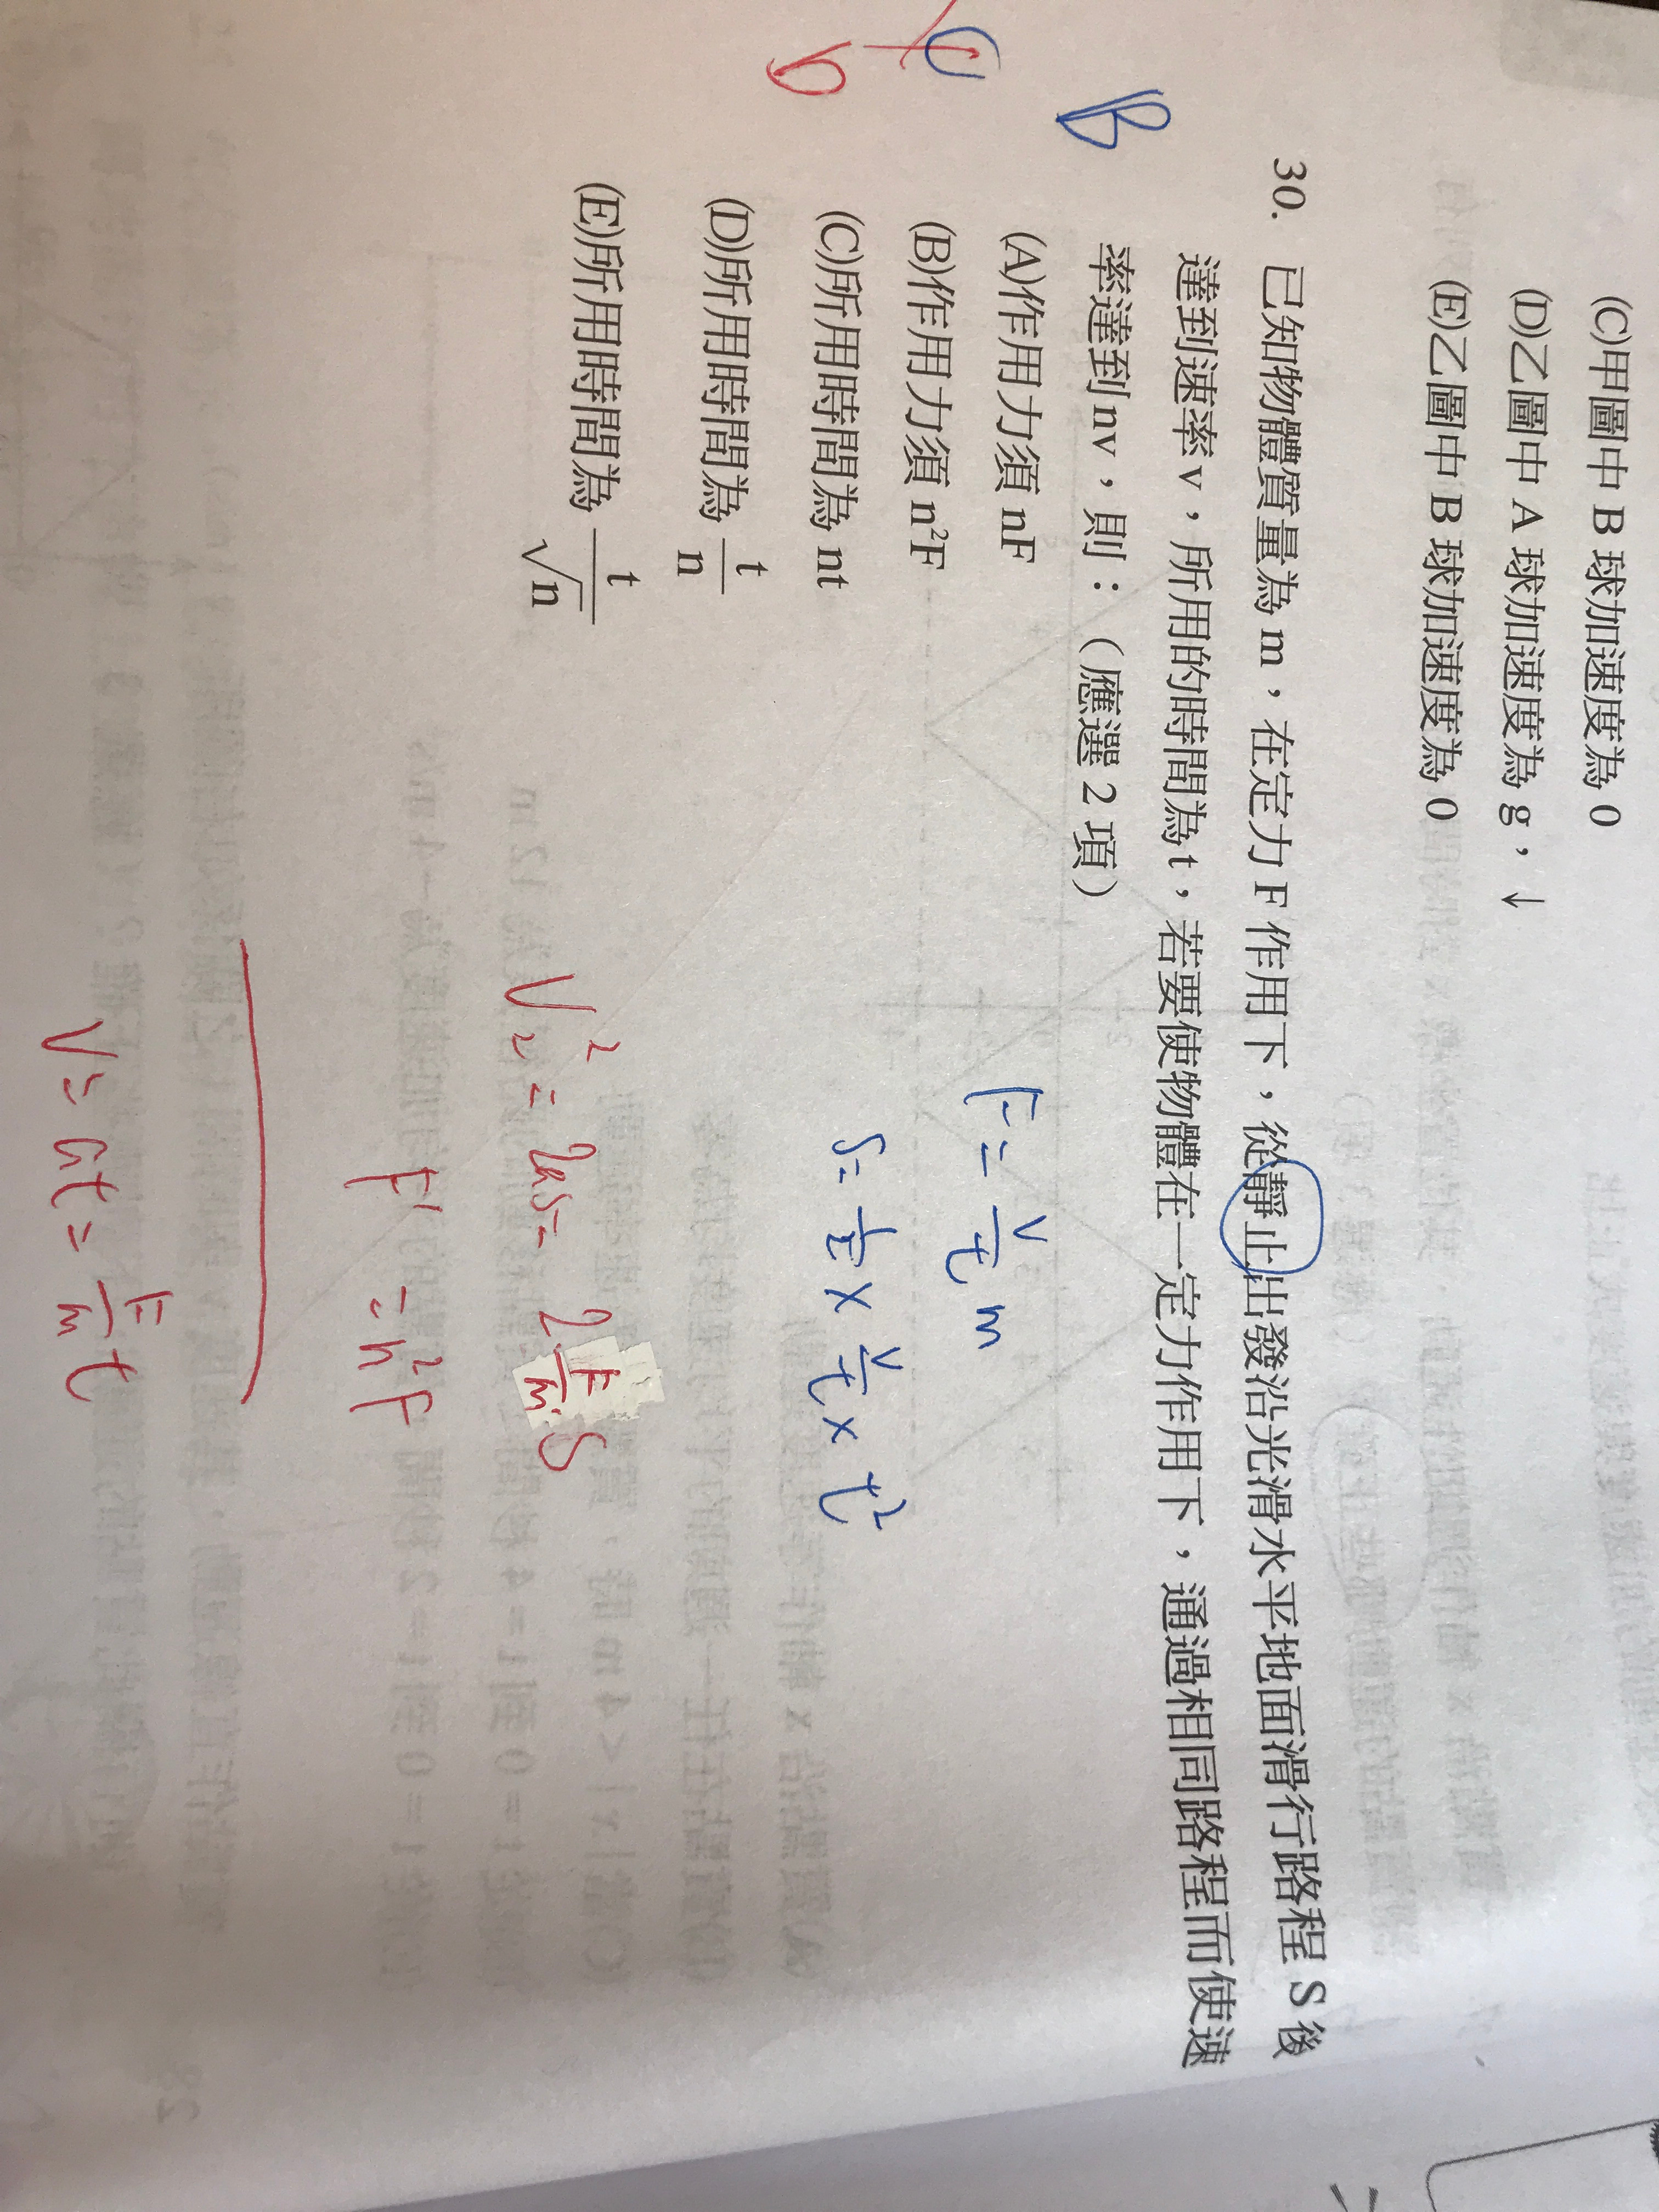 (C)甲圖中 B 球加速度為 0
(D)乙圖中 A 球加速度為 g，↓
(E)乙圖中 B 球加速度為 0
B
D
30. 已知物體質量為 m，在定力 F 作用下，從靜止出發沿光滑水平地面滑行路程 S 後
達到速率 v，所用的時間為 t，若要使物體在一定力作用下，通過相同路程而使速
率達到 nv，則：（應選 2 項）
(A)作用力須 nF
(B)作用力須 n²F
(C)所用時間為 nt
(D)所用時間為 t/n
(E)所用時間為 t/√n
F = v/t m
S = 1/2 × v/t × t²
V₂² = 2as = 2 F/m · S
F' = n²F
V = at = F/m t